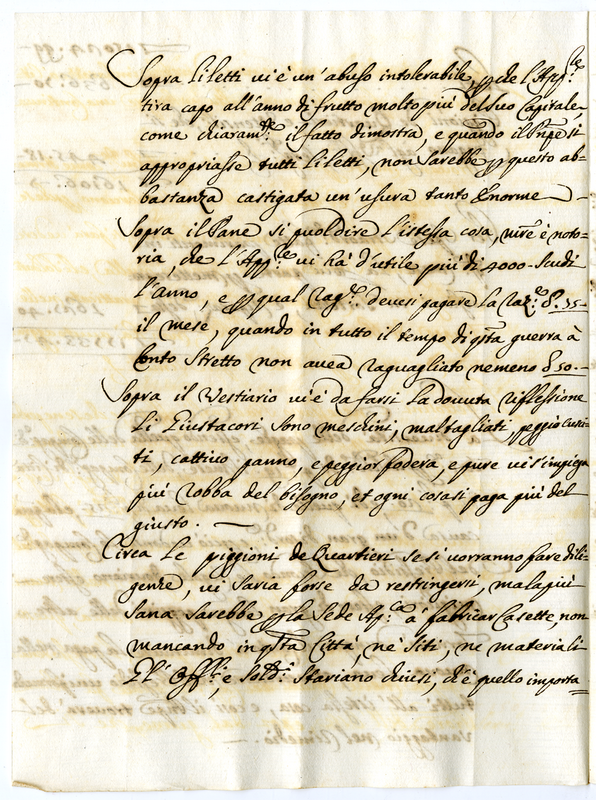 Sopra li letti vi è un'abuso intolerabile, che l'App.le
tira capo all'anno di frutto molto più del suo Capitale,
come chiaram.te il fatto dimostra, e quando il Pnpe si
appropriasse tutti li letti, non sarebbe questo ab=
bastanza castigata un'usura tanto Enorme —
Sopra il Pane si può dire l'istessa cosa, è noto=
ria, che l'App.le vi hà d'utile più di 4000 = Scudi
l'anno, e qual rag.e devesi pagare la raz.e 35=
il mese, quando in tutto il tempo di qsta guerra à
Conto stretto non avea raguagliato nemeno 50.=
Sopra il Vestiario vi è da farsi la dovuta riflessione
Li Giustacori sono meschini, mal tagliati, peggio cusci=
ti, cattivo panno, e peggior fodera, e pure vi s'impiega
più robba del bisogno, et ogni cosa si paga più del
giusto. —
Circa le piggioni de Quartieri se si vorranno fare dili=
genze, vi saria forse da restringersi, ma la più
sana sarebbe la Sede Ap.ca à fabricar Casette, non
mancando in qsta Città, nè siti, ne materiali
El' Off.li, e Sold.i stariano chiusi, ch'è quello importa=